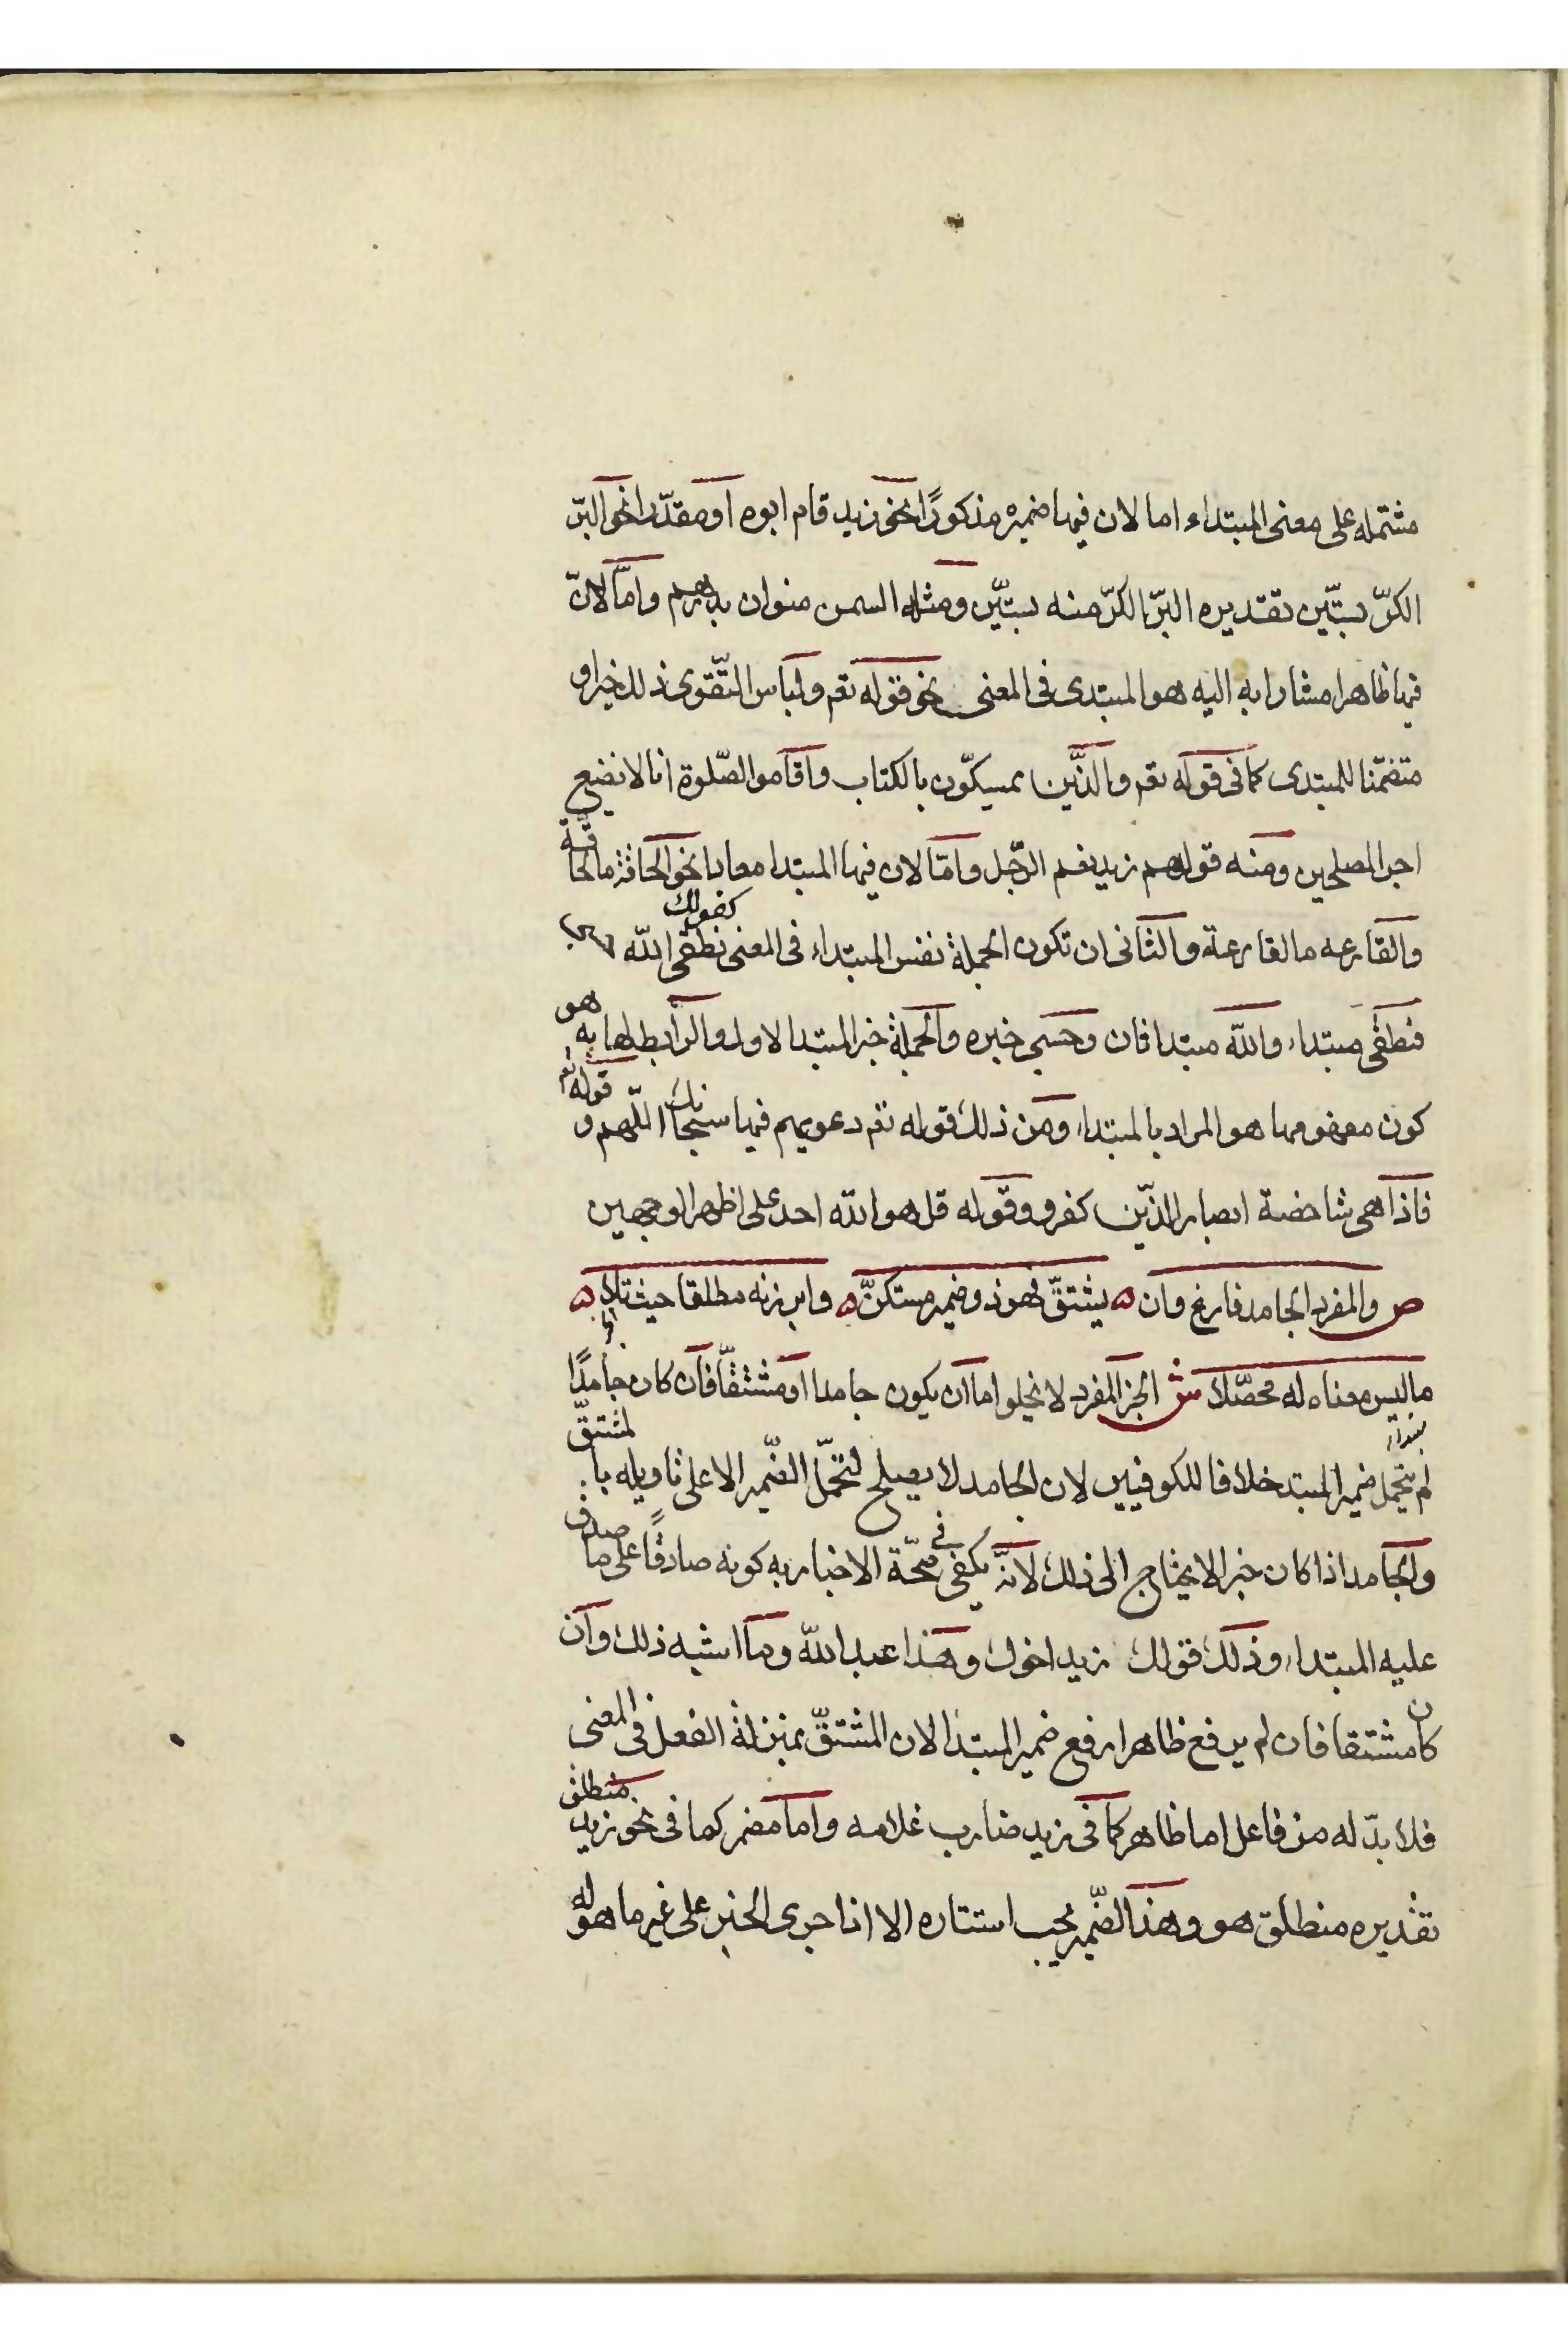 مشتمله على معنى المبتداء اما لان فيها ضميره مذكورًا نحو زيد قام ابوه او مقدّرا نحو البرّ
الكرّ بستّين تقديره البرّ الكرّ منه بستّين ومثله السمن منوان بدرهم وامّا لانّ
فيها ظاهرا مشارا به اليه هو المبتدى فى المعنى نحو قوله تعم ولباس التّقوى ذلك خير او
متضمّنا للمبتدى كما فى قوله تعم والذّين يمسكّون بالكتاب واقاموا الصّلوة انا لا نضيع
اجر المصلحين ومنه قولهم زيد نعم الرّجل وامّا لان فيها المبتدا معادا نحو الحاقة ما الحاقة
والقارعه ما القارعة والثانى ان تكون الجملة نفس المبتداء فى المعنى كقولك نطقى الله
فنطقى مبتداء والله مبتدا ثان وحسبى خبره والجملة خبر المبتدا الاول والرابط لها به هو
كون مفهومها هو المراد بالمبتداء ومن ذلك قوله تعم دعويهم فيها سبحانك اللّهم و قوله تعم
فاذا هى شاخصة ابصار الذّين كفروا وقوله قل هو الله احد على اظهر الوجهين
ص والمفرد الجامد فارغ وان ه يشتقّ فهو ذو ضمير مستكنّ ه وابرزنه مطلقا حيث تلا ه
ما ليس معناه له محصّلا ش الجز المفرد لا يخلوا اما ان يكون جامدا او مشتقّا فان كان جامدًا
لم يتحمل ضمير المبتد خلافا للكوفيين لان الجامد لا يصلح لتحمّل الضّمير الا على تاويله بالمشتقّ
والجامد اذا كان خبر الا يحتاج الى ذلك لانّه يكفى فى صحّة الاخبار به كونه صادقًا على ما صدق
عليه المبتداء وذلك قولك زيد اخوك وهذا عبد الله وما اشبه ذلك وان
كان مشتقا فان لم يرفع ظاهرا رفع ضمير المبتدا لان المشتقّ بمنزلة الفعل فى المعنى
فلا بدّ له من فاعل اما ظاهر كما فى زيد ضارب غلامه واما مضمر كما فى نحو زيد منطلق
تقديره منطلق هو وهذا الضّمير يجب استتاره الا اذا جرى الخبر على غير ما هو له